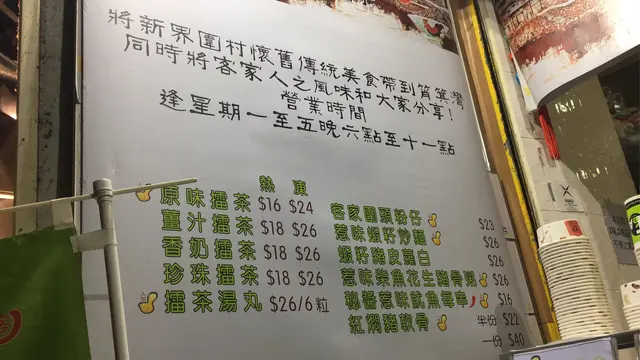 將新界圍村懷舊傳統美食帶到筲箕灣
同時將客家人之風味和大家分享！
營業時間
逢星期一至五晚六點至十一點
熱 凍
原味擂茶 $16 $24
薑汁擂茶 $18 $26
香奶擂茶 $18 $26
珍珠擂茶 $18 $26
擂茶湯丸 $26/6粒
客家圍頭撈仔 $23
惹味蝦籽炒麵 $26
蝦籽豬皮蘿白 $26
惹味柴魚花生豬骨粥 $26
秘醬惹味魷魚每串 $16
紅燜豬軟骨 半份 $22
一份 $40